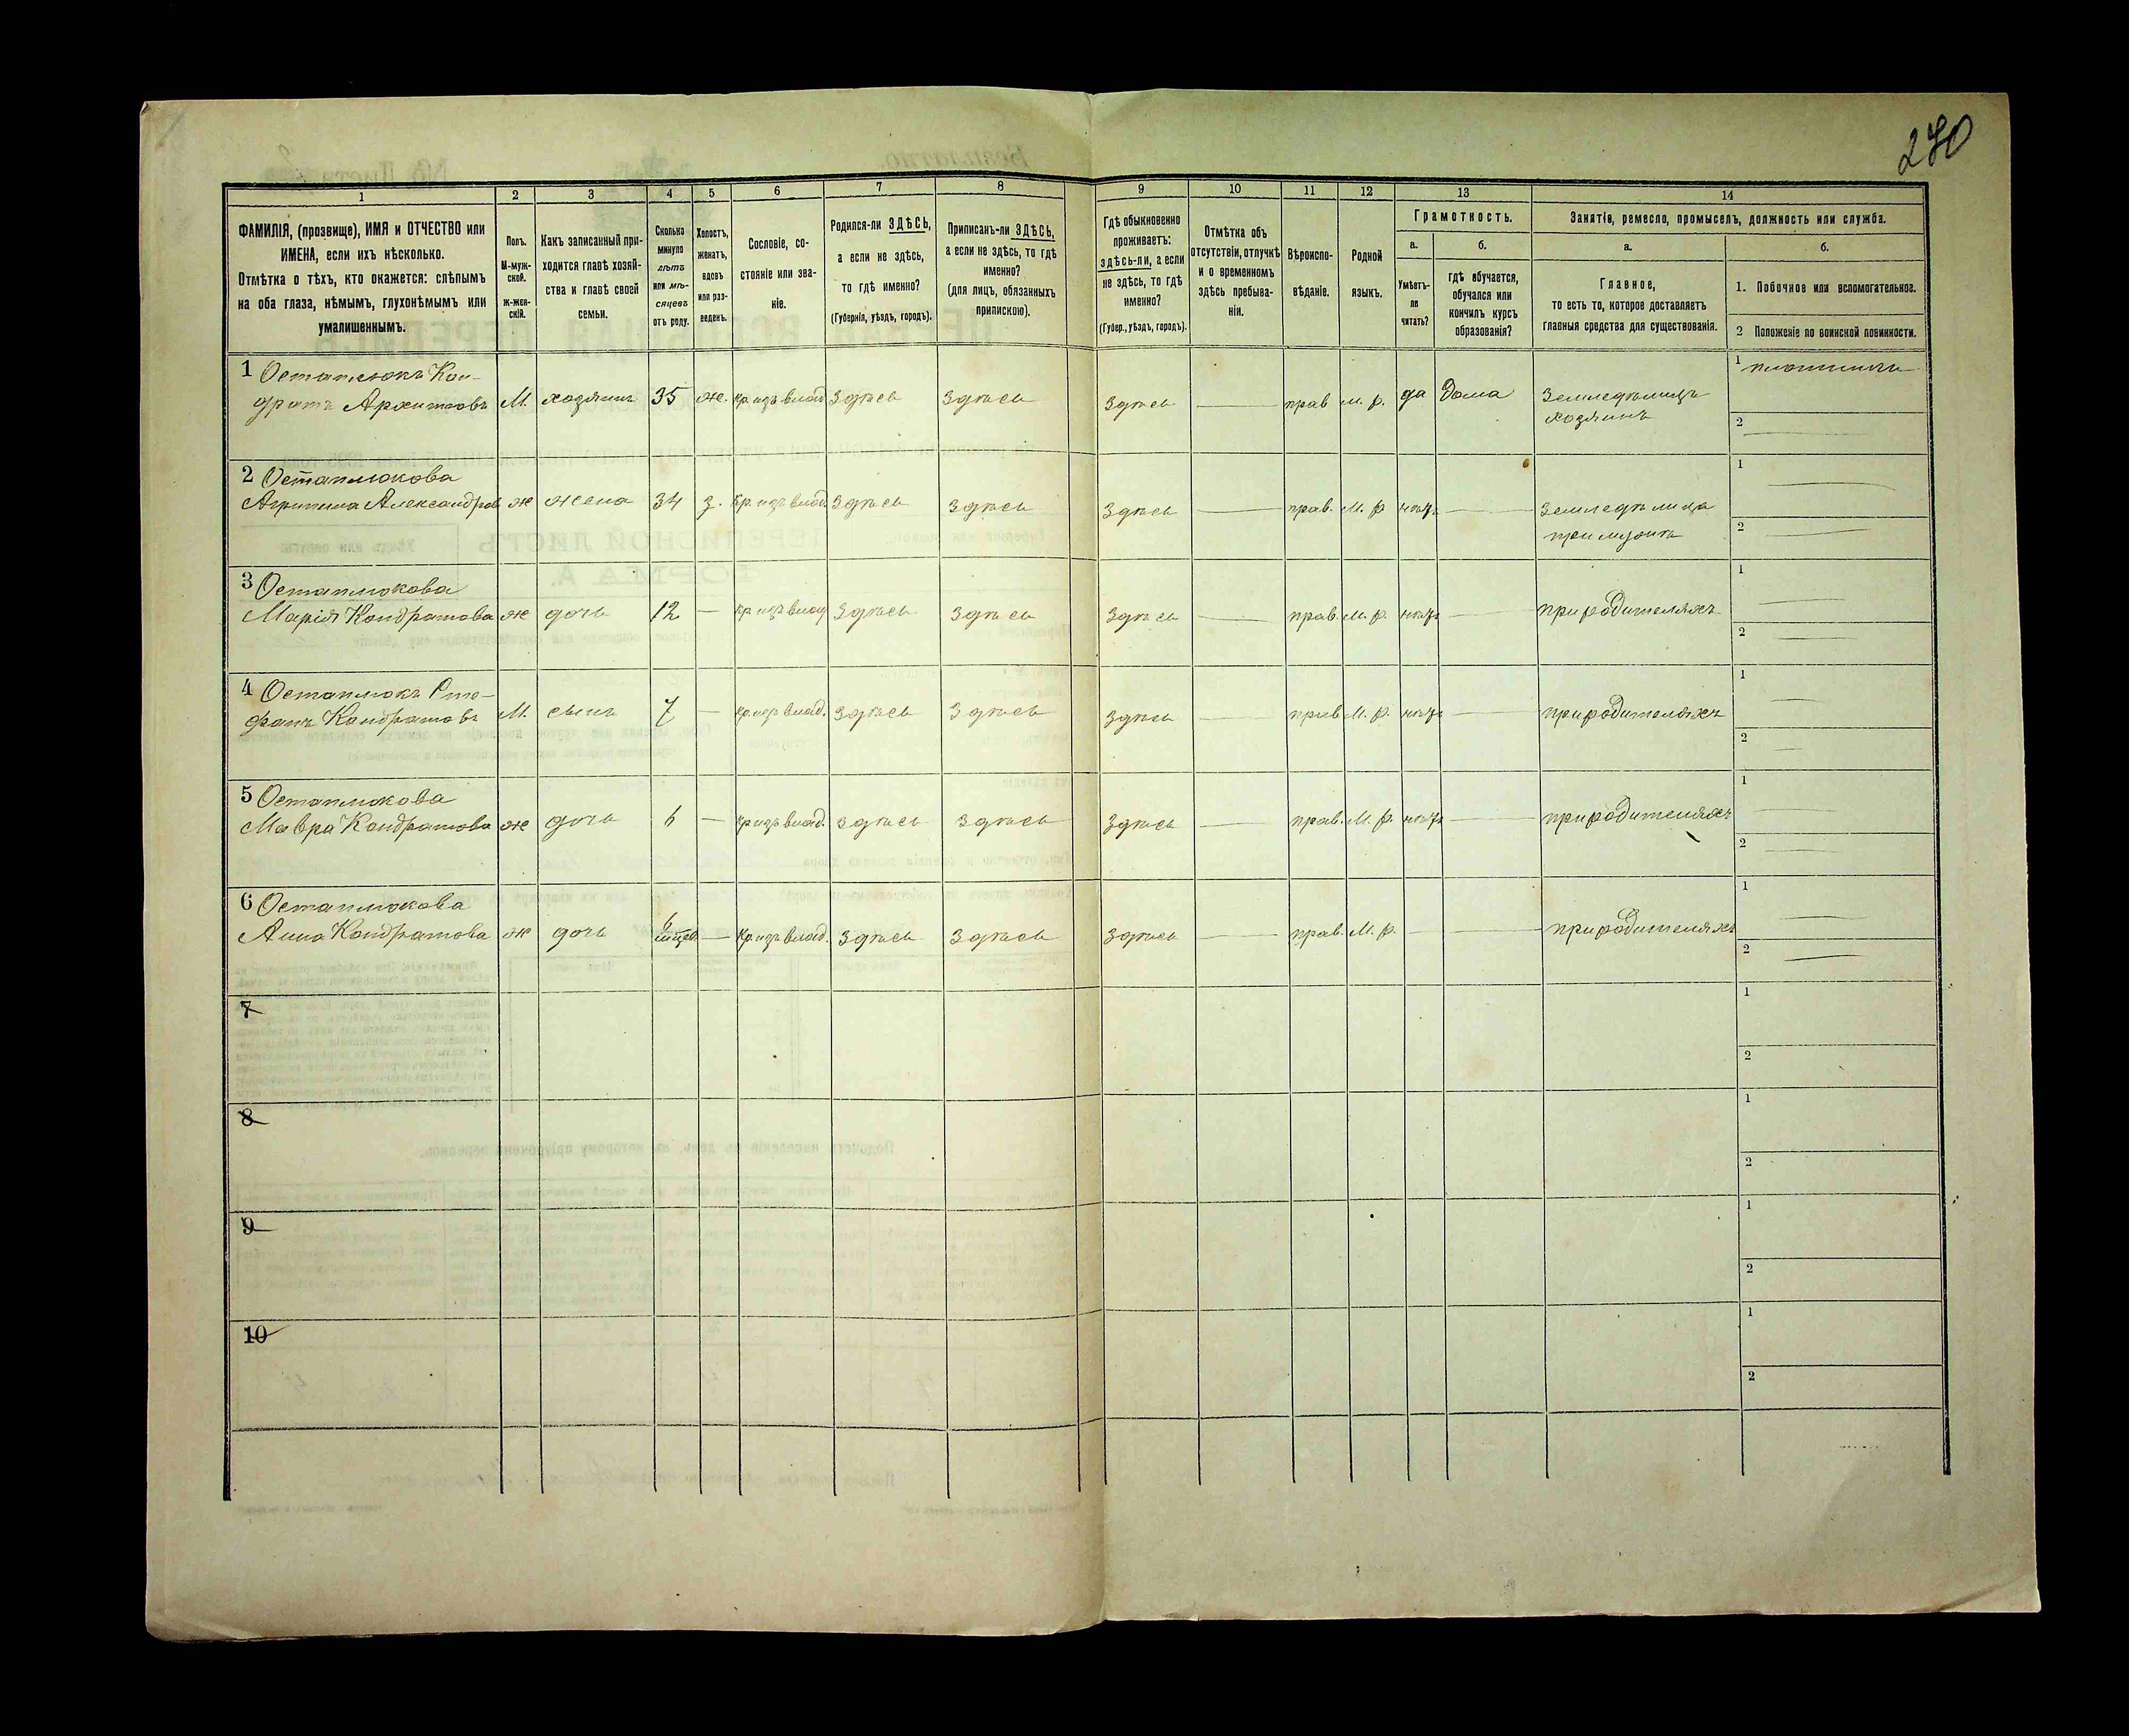 270
1 2 3 4 5 6 7 8 9 10 11 12 13 14
ФАМИЛІЯ, (прозвище), ИМЯ и ОТЧЕСТВО или
ИМЕНА, если ихъ нѣсколько.
Отмѣтка о тѣхъ, кто окажется: слѣпымъ
на оба глаза, нѣмымъ, глухонѣмымъ или
умалишеннымъ.
Полъ.
М-муж-
ской.
ж-жен-
скій.
Какъ записанный при-
ходится главѣ хозяй-
ства и главѣ своей
семьи.
Сколько
минуло
лѣтъ
или мѣ-
сяцевъ
отъ роду.
Холостъ,
женатъ,
вдовъ
или раз-
веденъ.
Сословіе, со-
стояніе или зва-
ніе.
Родился-ли ЗДѢСЬ,
а если не здѣсь,
то гдѣ именно?
(Губернія, уѣздъ, городъ).
Приписанъ-ли ЗДѢСЬ,
а если не здѣсь, то гдѣ
именно?
(для лицъ, обязанныхъ
припискою).
Гдѣ обыкновенно
проживаетъ:
здѣсь-ли, а если
не здѣсь, то гдѣ
именно?
(Губер., уѣздъ, городъ).
Отмѣтка объ
отсутствіи, отлучкѣ
и о временномъ
здѣсь пребыва-
ніи.
Вѣроиспо-
вѣданіе.
Родной
языкъ.
Грамотность.
а. б.
Умѣетъ-
ли
читать?
Гдѣ обучается,
обучался или
кончилъ курсъ
образованія?
Занятіе, ремесло, промыселъ, должность или служба.
а. б.
Главное,
то есть то, которое доставляетъ
главныя средства для существованія.
1. Побочное или вспомогательное.
2 Положеніе по воинской повинности.
1 Остапюкъ Кон-
дратъ М. хозяинъ 35 ж. кр. изъ влад здѣсь здѣсь здѣсь — прав м. р. да дома Земледѣлецъ
хозяинъ
1
2 —
2 Остапюкова
Агрипина Александров ж жена 34 з. кр. изъ влад. здѣсь здѣсь здѣсь — прав. м. р нѣтъ — земледѣлица
при мужѣ
1 —
2 —
3 Остапюкова
Марія Кондратова ж дочь 12 — кр изъ влад здѣсь здѣсь здѣсь — прав. м. р. нѣтъ — при родителяхъ
1 —
2 —
4 Остапюкъ Сте-
фанъ Кондратовъ М. сынъ 7 — кр. изъ влад. здѣсь здѣсь здѣсь — прав м. р. нѣтъ — при родителяхъ
1 —
2 —
5 Остапюкова
Мавра Кондратова ж дочь 6 — кр изъ влад. здѣсь здѣсь здѣсь — прав. м. р. нѣтъ — при родителяхъ
1 —
2 —
6 Остапюкова
Анна Кондратова ж дочь 6 — кр изъ влад. здѣсь здѣсь здѣсь — прав. м. р. — — при родителяхъ
1 —
2 —
7
1
2
8
1
2
9
1
2
10
1
2